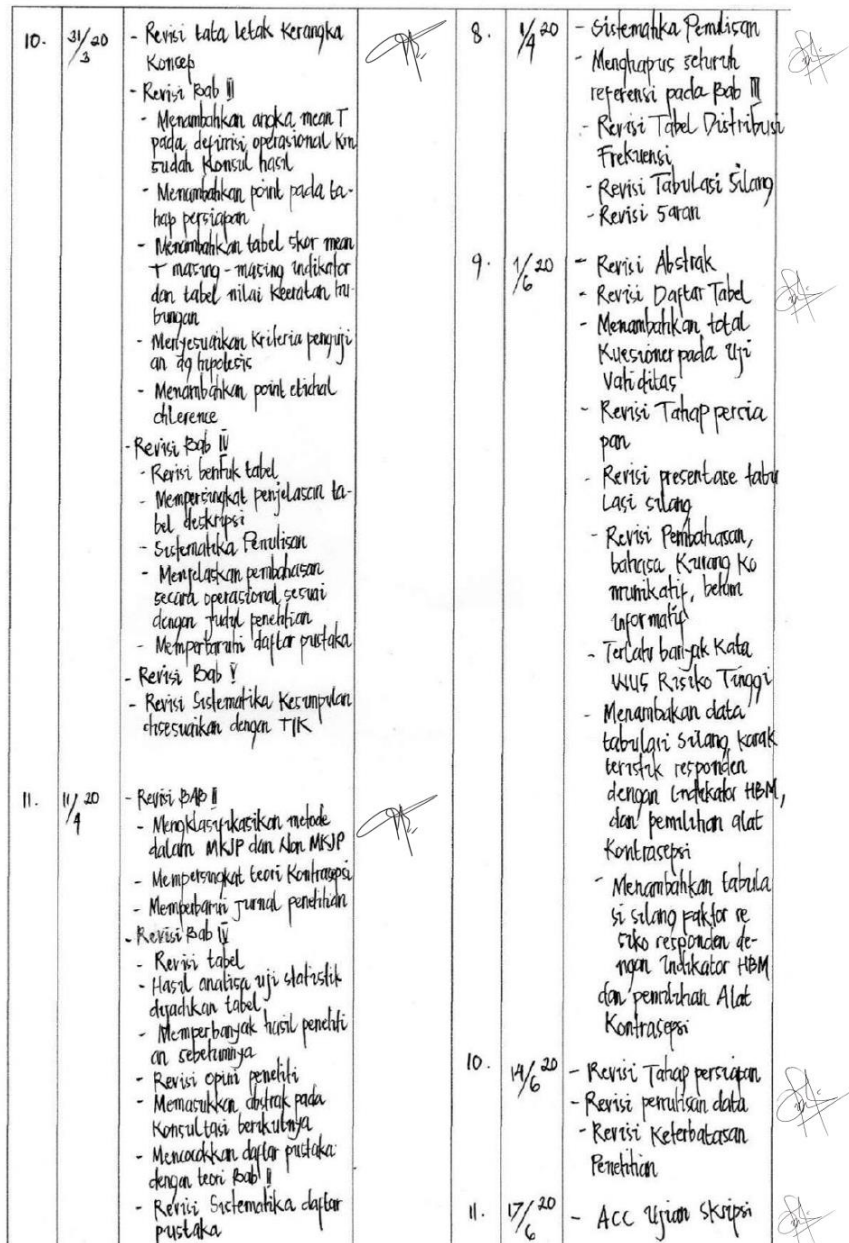 10. 31/3 20 - Revisi tata letak Kerangka
Konsep
- Revisi Bab III
- Menambahkan angka mean T
pada definisi operasional krn
sudah Konsul hasil
- Menambahkan point pada ta-
hap persiapan
- Menambahkan tabel skor mean
T masing-masing indikator
dan tabel nilai keeratan hu-
bungan
- Menyesuaikan Kriteria penguji
an dg hipotesis
- Menambahkan point etichal
- Revisi Bab IV
- Revisi bentuk tabel
- Mempersingkat penjelasan ta-
bel deskripsi
- Sistematika Penulisan
- Menjelaskan pembahasan
secara operasional sesuai
dengan judul penelitian
- Memperbarui daftar pustaka
- Revisi Bab V
- Revisi Sistematika Kesimpulan
disesuaikan dengan TIK
11. 11/4 20 - Revisi BAB II
- Mengklasifikasikan metode
dalam MKJP dan Non MKJP
- Mempersingkat teori Kontrasepsi
- Memperbarui jurnal penelitian
- Revisi Bab IV
- Revisi tabel
- Hasil analisa uji statistik
dijadikan tabel
- Memperbanyak hasil peneliti
an sebelumnya
- Revisi opini peneliti
- Memasukkan abstrak pada
Konsultasi berikutnya
- Mencocokkan daftar pustaka
dengan teori Bab II
- Revisi Sistematika daftar
pustaka
8. 1/4 20 - Sistematika Penulisan
- Menghapus seluruh
referensi pada Bab III
- Revisi Tabel Distribusi
Frekuensi
- Revisi Tabulasi Silang
- Revisi Saran
9. 1/6 20 - Revisi Abstrak
- Revisi Daftar Tabel
- Menambahkan total
Kuesioner pada Uji
Validitas
- Revisi Tahap persia
pan
- Revisi presentase tabu
lasi silang
- Revisi Pembahasan,
bahasa Kurang Ko
munikatif, belum
informatif
- Terlalu banyak Kata
WUS Risiko Tinggi
- Menambakan data
tabulasi silang karak
teristik responden
dengan indikator HBM,
dan pemilihan alat
Kontrasepsi
- Menambahkan tabula
si silang faktor re
siko responden de-
ngan indikator HBM
dan pemilihan Alat
Kontrasepsi
10. 14/6 20 - Revisi Tahap persiapan
- Revisi penulisan data
- Revisi Keterbatasan
Penelitian
11. 17/6 20 - ACC Ujian Skripsi